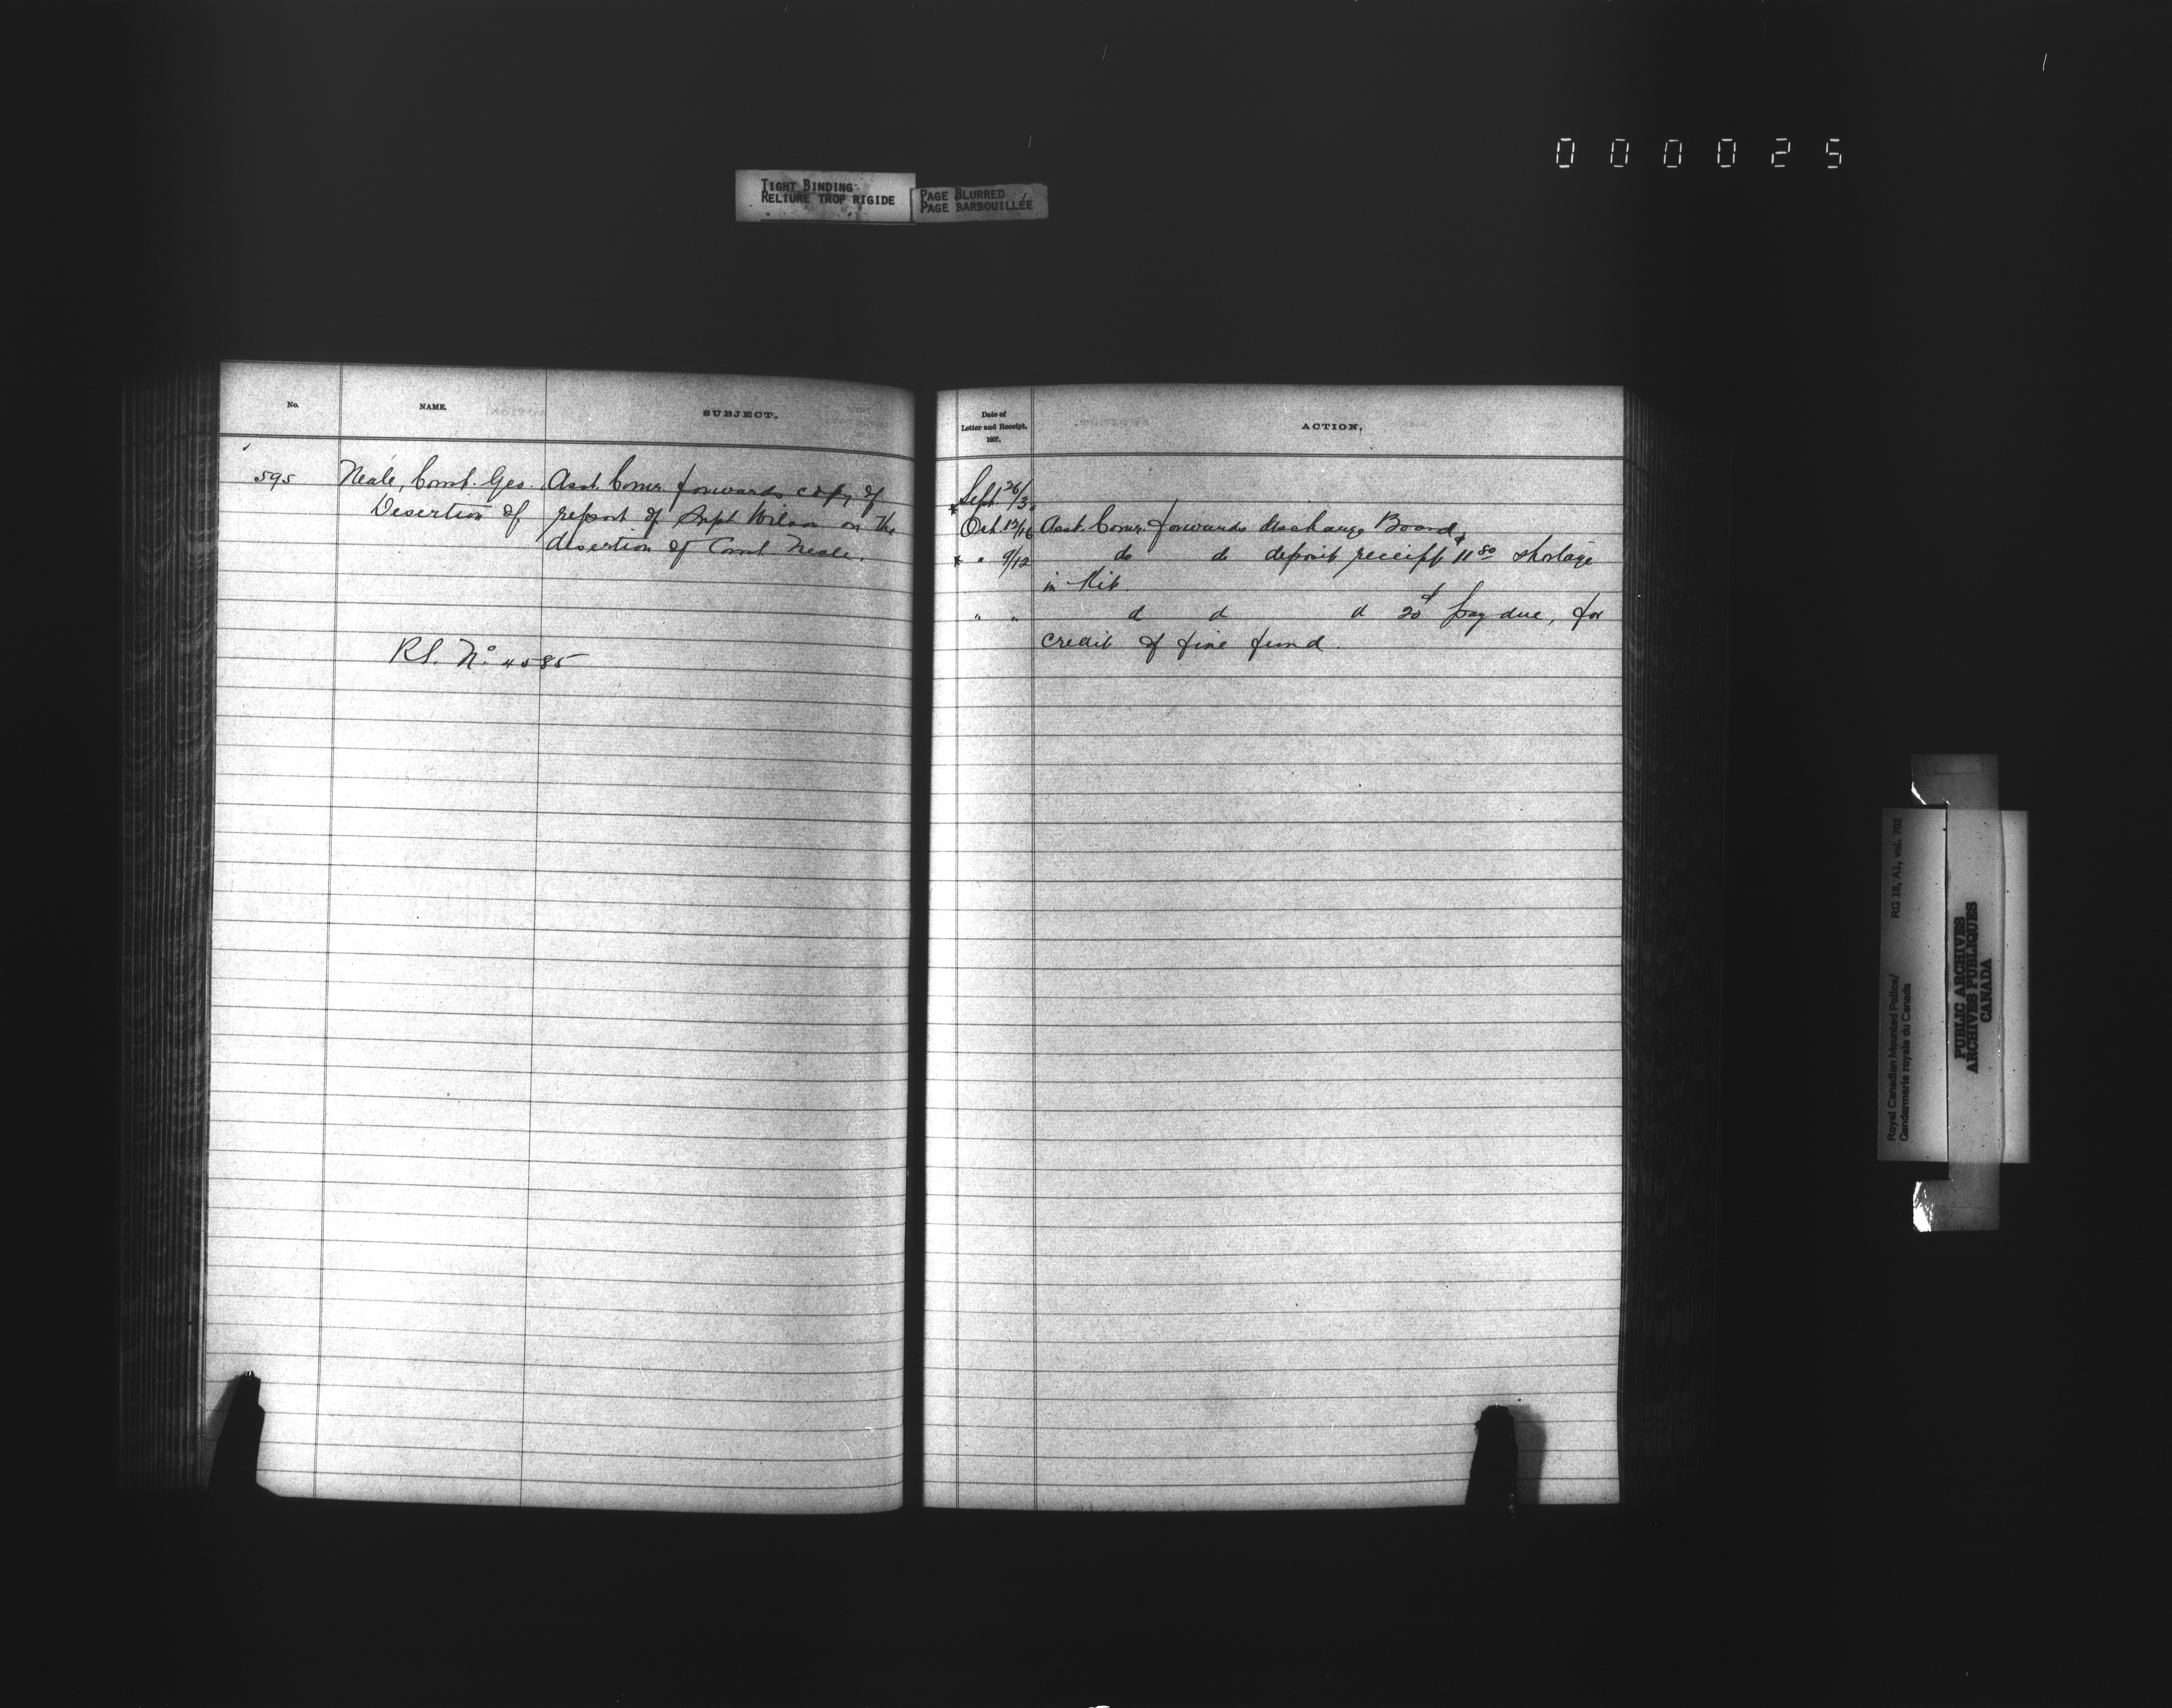 000025
TIGHT BINDING
RELIURE TROP RIGIDE
PAGE BLURRED
PAGE BARBOUILLÉE
No.
NAME.
SUBJECT.
595
Neale, Const. Geo.
Desertion of
Asst. Comr. forwards copy of
report of Supt Wilson on the
desertion of Const Neale.
R.S. No 4585
Date of
Letter and Receipt,
1907.
ACTION.
Sept. 26/30
Oct. 12/16 Asst. Comr. forwards discharge Board
" 9/12 do do deposit receipt $11.80 shortage
in Kit.
" " d d d 20 pay due, for
credit of fine fund.
Royal Canadian Mounted Police/
Gendarmerie royale du Canada
RG 18, A1, vol. 702
PUBLIC ARCHIVES
ARCHIVES PUBLIQUES
CANADA